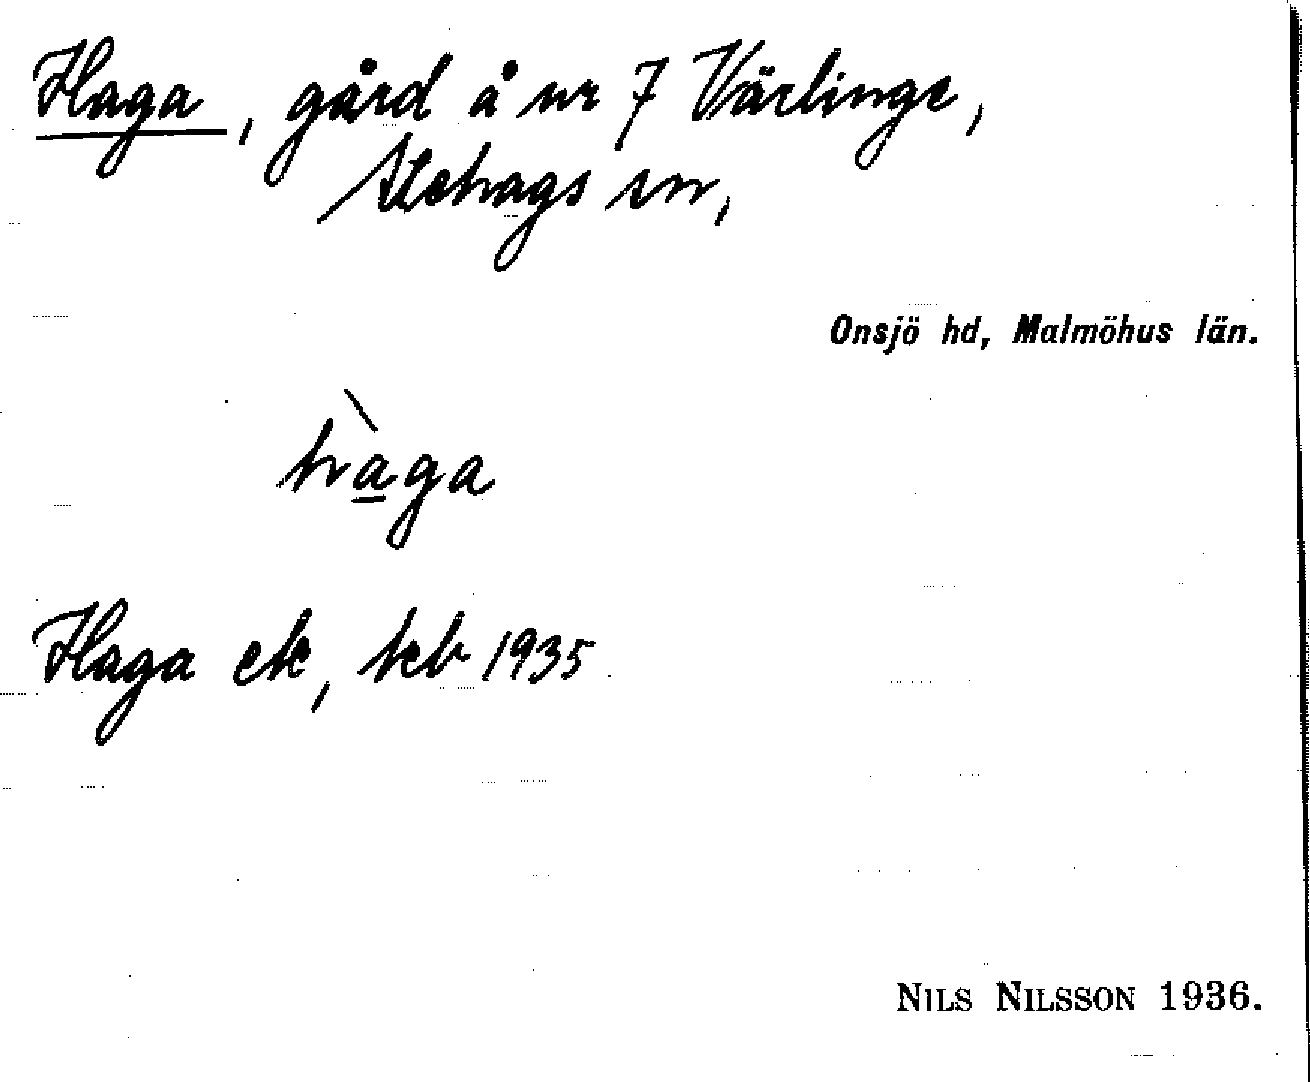 Haga, gård å nr 7 Värlinge,
Stehags sn,
Onsjö hd, Malmöhus län.
hàga
Haga ek, kb 1935
NILS NILSSON 1936.